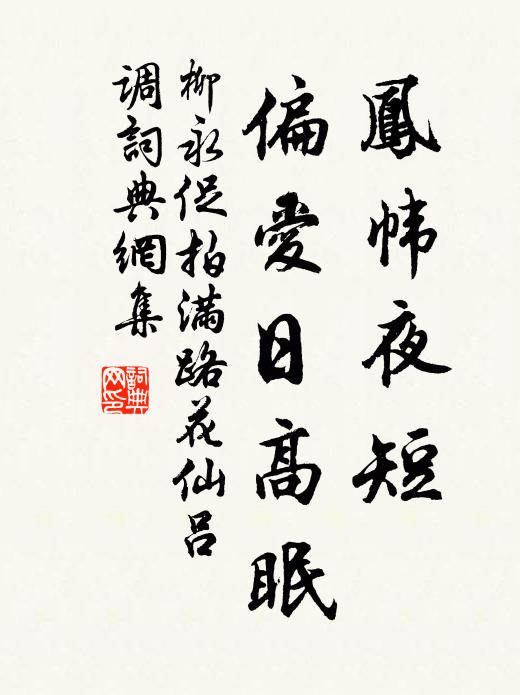 鳳幃夜短
偏愛日高眠
柳永促拍滿路花仙呂
調詞典網集
詞典
网印